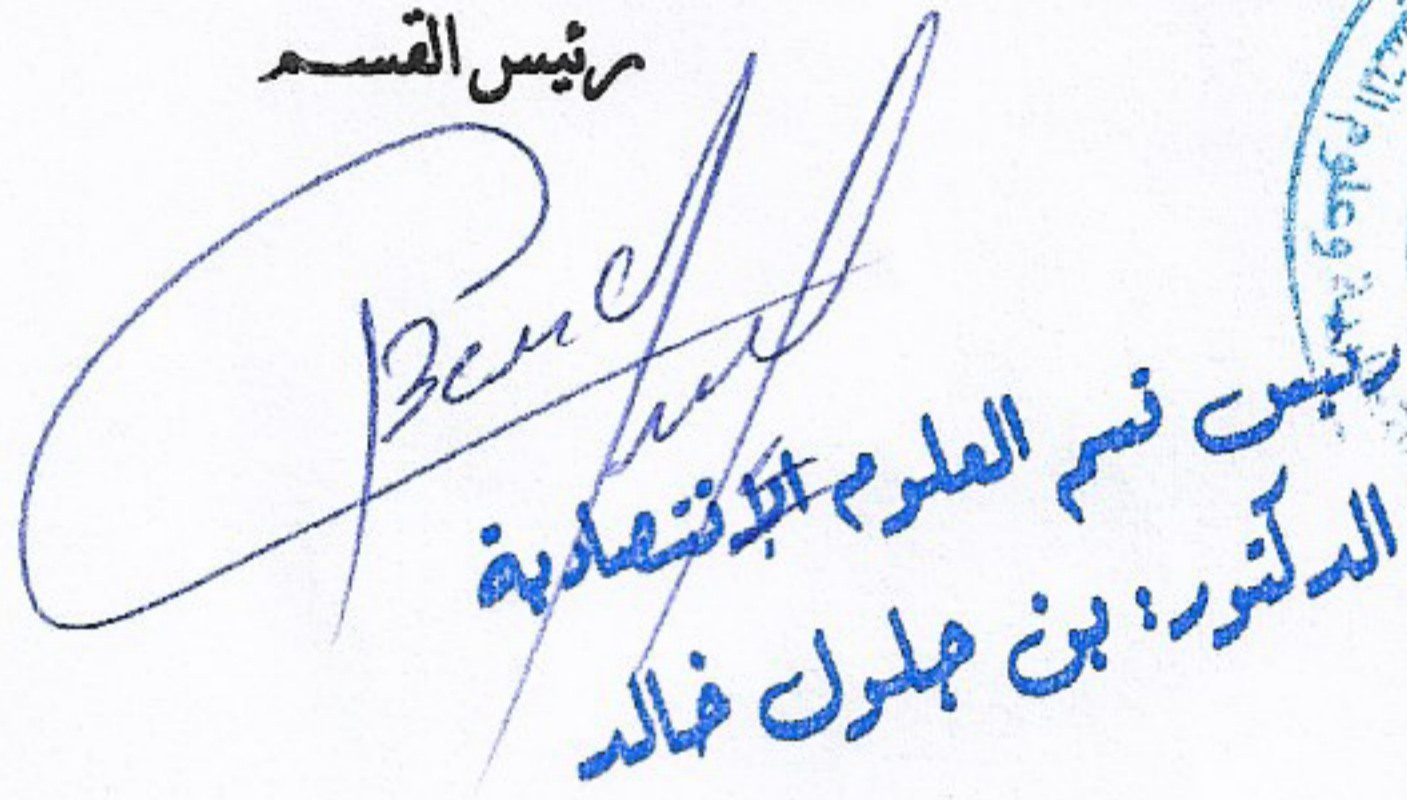 رئيس القسم
رئيس قسم العلوم الاقتصادية
الدكتور: بن جلول خالد